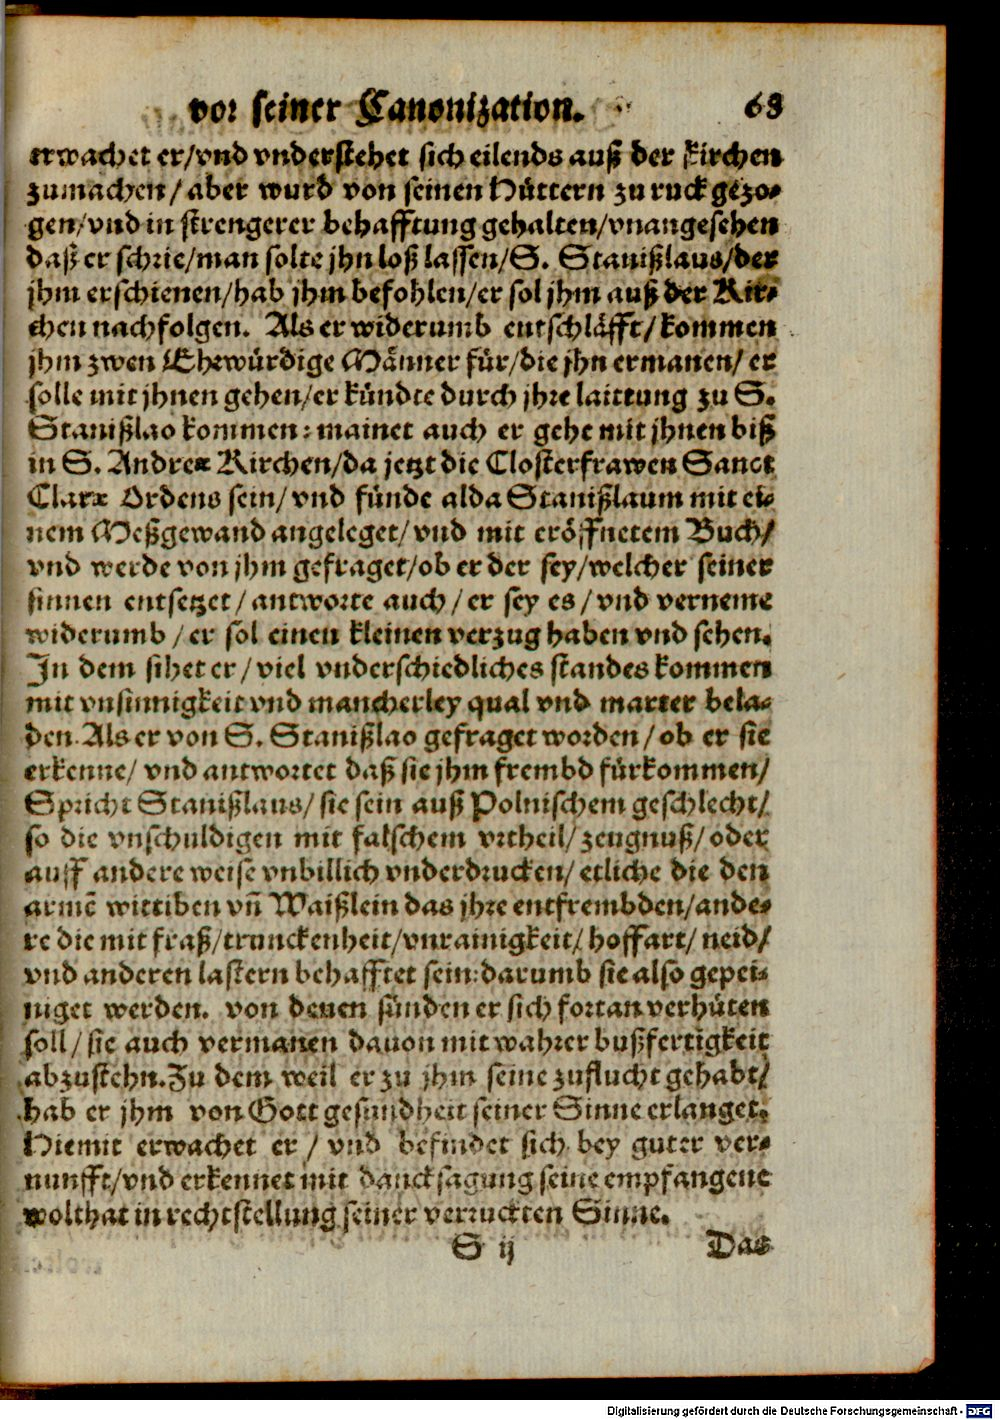 vor seiner Canonization. 68
erwachet er/vnd vnderstehet sich eilends auß der kirchen
zumachen/aber wurd von seinen Hüttern zu ruck gezo-
gen/vnd in strengerer behafftung gehalten/vnangesehen
daß er schrie/man solte jhn loß lassen/S. Stanißlaus/der
jhm erschienen/hab jhm befohlen/er sol jhm auß der Kir-
chen nachfolgen. Als er widerumb entschläfft/kommen
jhm zwen Ehewürdige Männer für/die jhn ermanen/er
solle mit jhnen gehen/er kündte durch jhre laittung zu S.
Stanißlao kommen: mainet auch er gehe mit jhnen biß
in S. Andreæ Kirchen/da jetzt die Closterfrawen Sanct
Claræ Ordens sein/vnd fünde alda Stanißlaum mit ei-
nem Meßgewand angeleget/vnd mit eröffnetem Buch/
vnd werde von jhm gefraget/ob er der sey/welcher seiner
sinnen entsetzet/antworte auch/er sey es/vnd verneme
widerumb/er sol einen kleinen verzug haben vnd sehen.
In dem sihet er/viel vnderschiedliches standes kommen
mit vnsinnigkeit vnd mancherley qual vnd marter bela-
den. Als er von S. Stanißlao gefraget worden/ob er sie
erkenne/vnd antwortet daß sie jhm frembd fürkommen/
Spricht Stanißlaus/sie sein auß Polnischem geschlecht/
so die vnschuldigen mit falschem vrtheil/zeugnuß/oder
auff andere weise vnbillich vnderdrucken/etliche die den
armē wittiben vñ Waißlein das jhre entfrembden/ande-
re die mit fraß/trunckenheit/vnrainigkeit/hoffart/neid/
vnd anderen lastern behafftet sein: darumb sie also gepei-
niget werden. von denen sünden er sich fortan verhüten
soll/sie auch vermanen dauon mit wahrer bußfertigkeit
abzustehn. Zu dem weil er zu jhm seine zuflucht gehabt/
hab er jhm von Gott gesundheit seiner Sinne erlanget.
Hiemit erwachet er/vnd befindet sich bey guter ver-
nunfft/vnd erkennet mit dancksagung seine empfangene
wolthat in rechtstellung seiner verruckten Sinne.
S ij Das
Digitalisierung gefördert durch die Deutsche Forschungsgemeinschaft - DFG